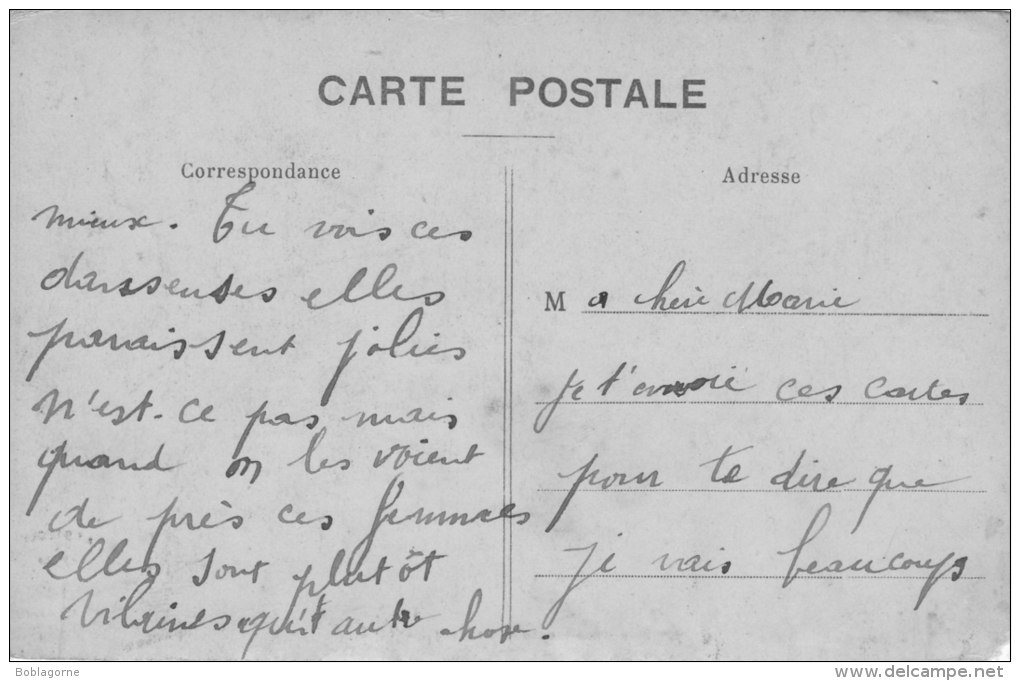 CARTE POSTALE
Adresse
Ma chère Marie
je t'envoie ces cartes
pour te dire que
je vais beaucoups
Correspondance
mieux. Tu vois ces
dansseuses elles
paraissent jolies
n'est-ce pas mais
quand on les voient
de près ces femmes
elles sont plutôt
vilaines qu'autre chose.
Boblagorne
www.delcampe.net